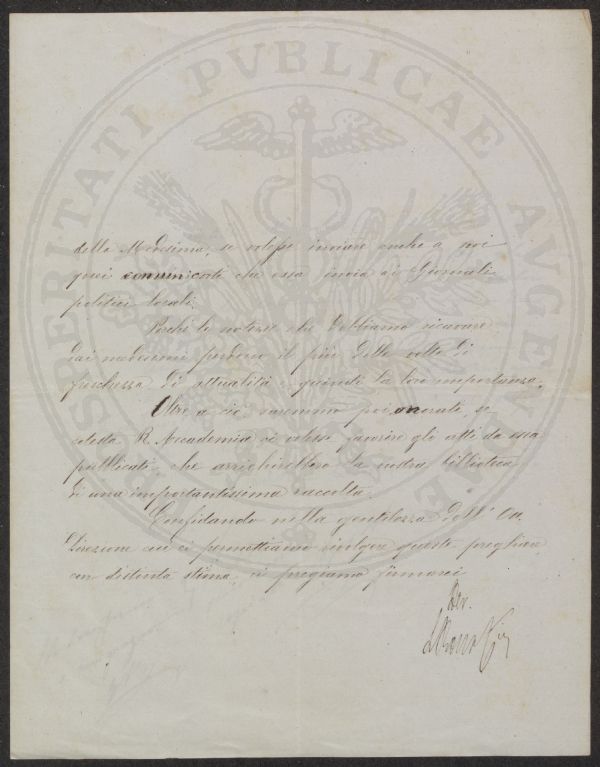 PROSPERITATI PVBLICAE AVGENDAE
della Medesima, se volesse inviare anche a noi
quei comunicati che essa invia ai Giornali
politici locali.
Perchè le notizie che dobbiamo ricavare
dai medesimi perdono il più delle volte di
freschezza di attualità e quindi la loro importanza.
Oltre a ciò saremmo poi onorati, se
codesta R. Accademia ci volesse favorire gli atti da essa
pubblicati, che arrichirebbero la nostra biblioteca
di una importantissima raccolta.
Confidando nella gentilezza dell' On.
Direzione cui ci permettiamo rivolgere questa preghiera
con distinta stima, ci pregiamo firmarci
Dev.